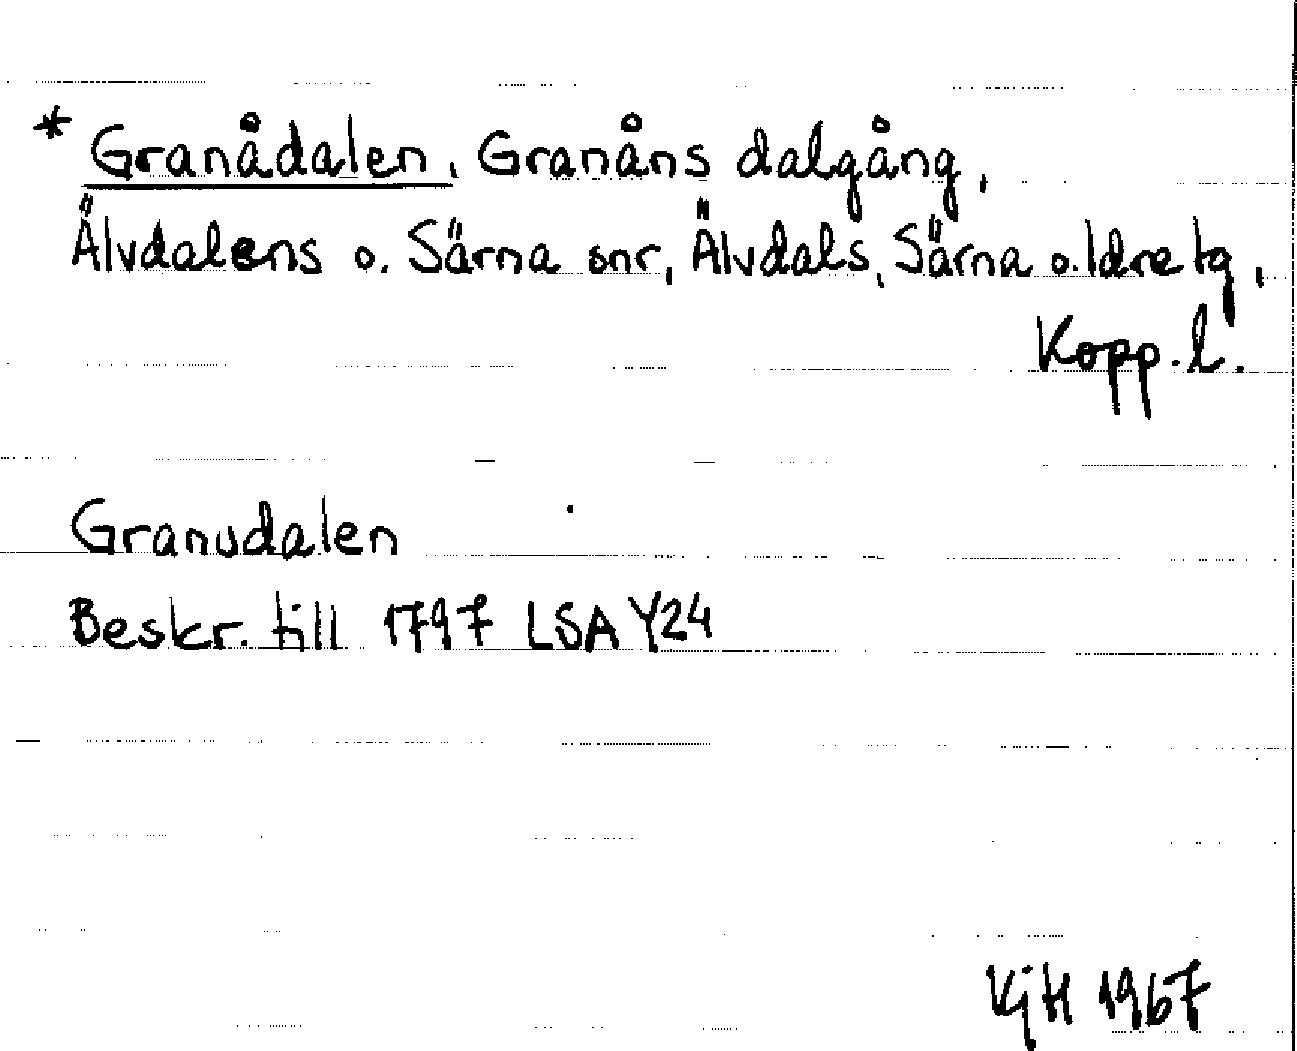 * Granådalen, Granåns dalgång,
Älvdalens o. Särna snr, Älvdals, Särna o. Idre tg,
Kopp. l.
Granudalen
Beskr. till 1797 LSA Y24
KjH 1967